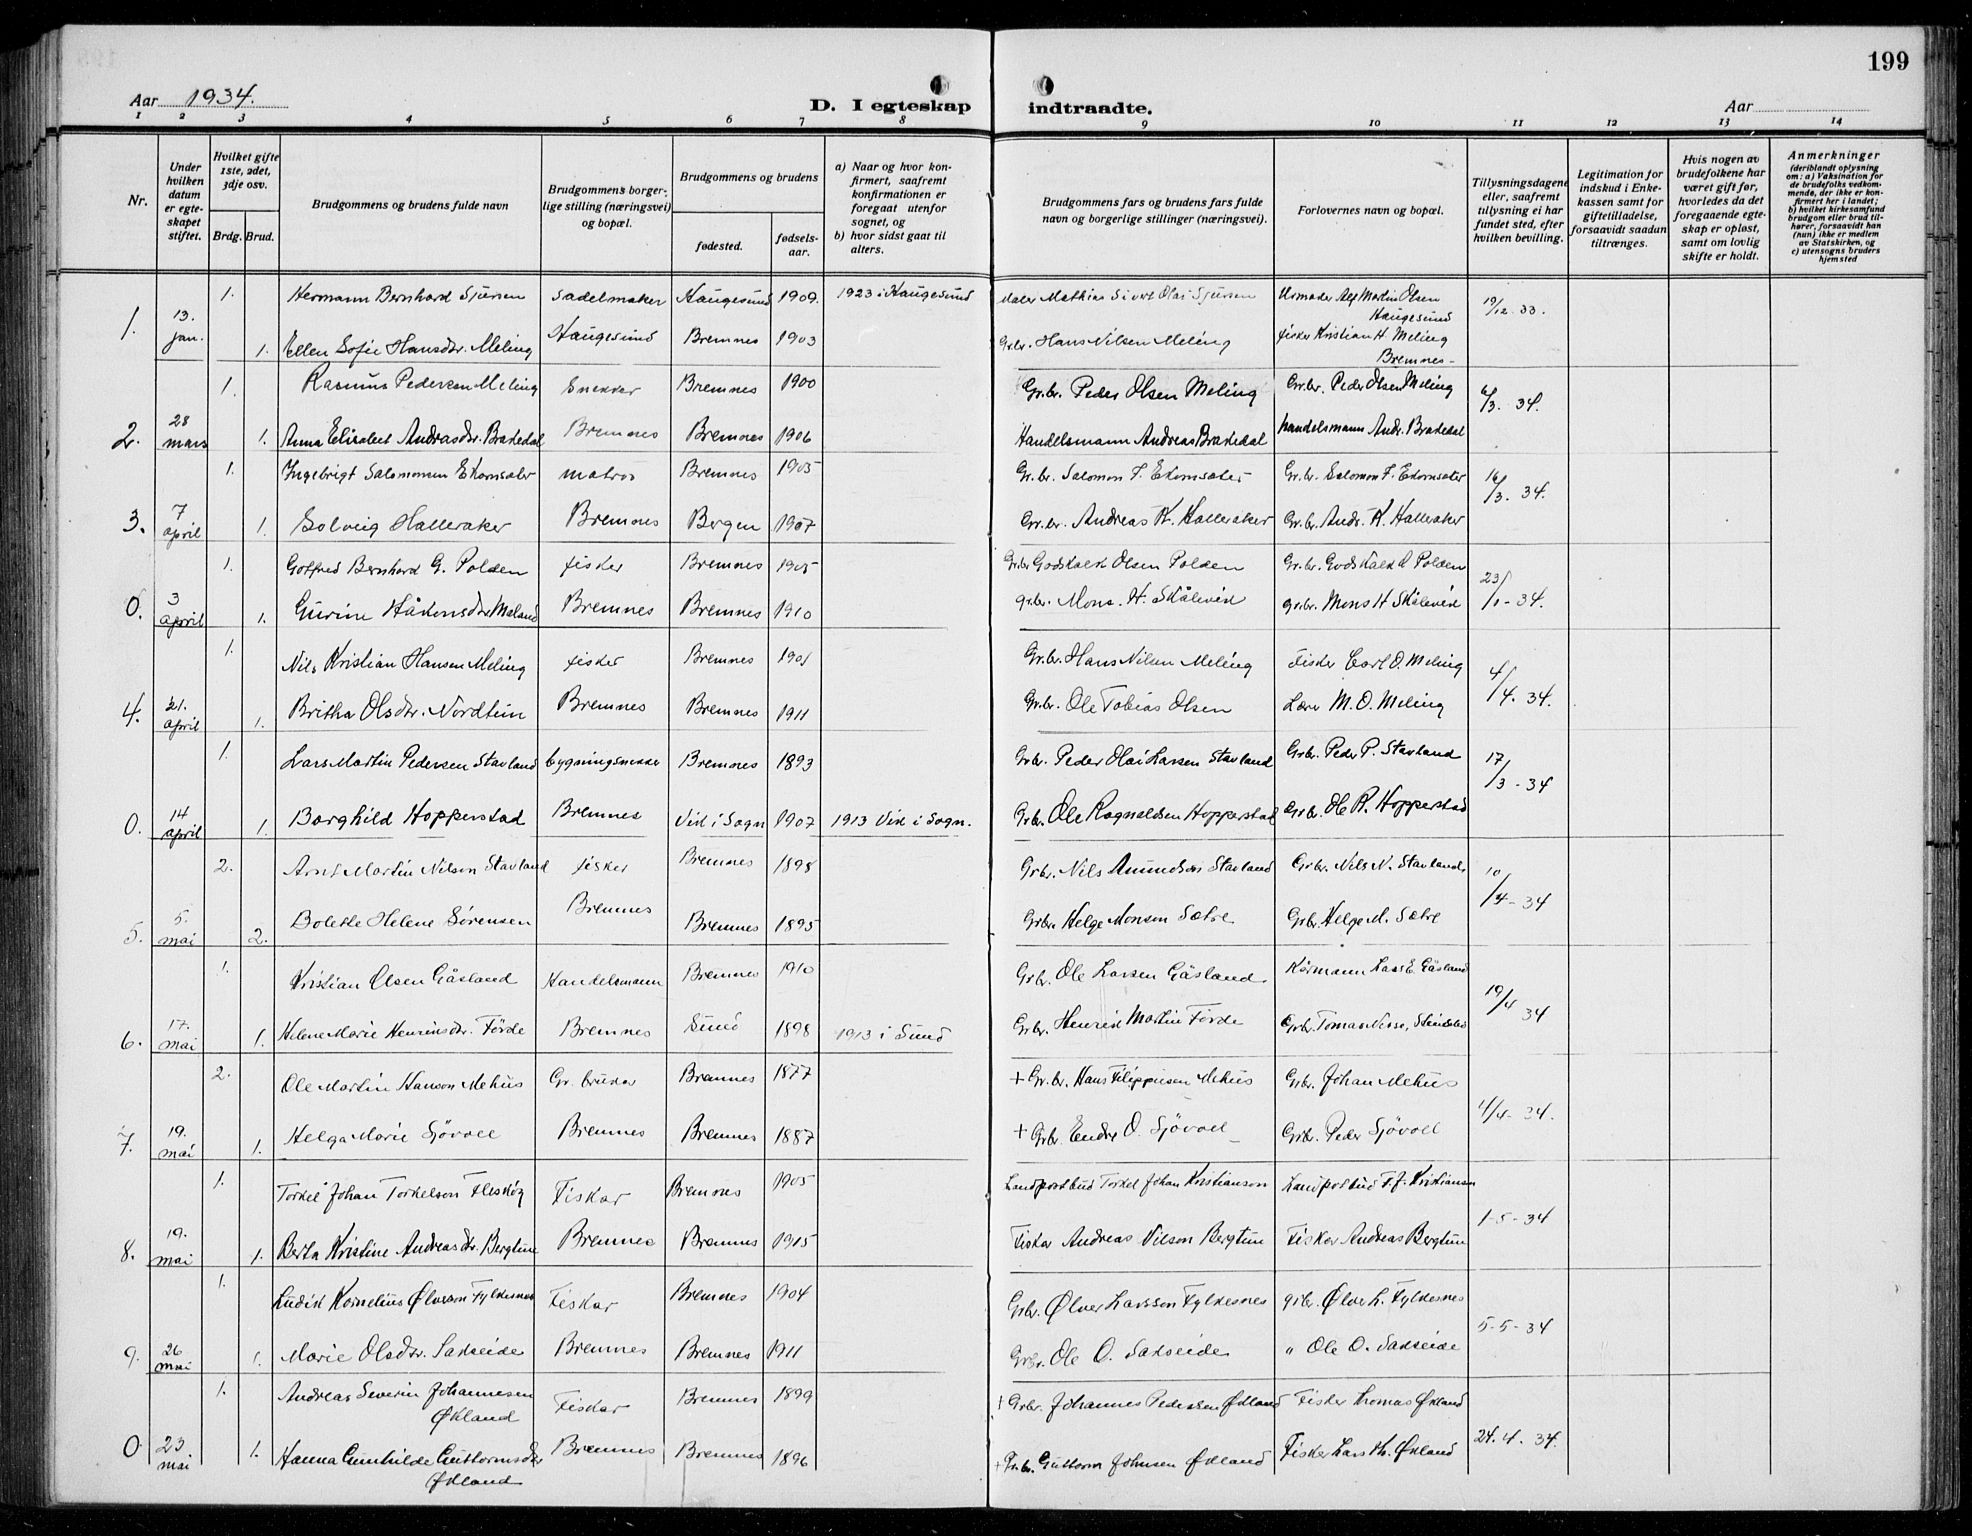 199
Aar 1934.
D. I egteskap
indtraadte.
Aar
1 2 3 4 5 6 7 8 9 10 11 12 13 14
Nr.
Under hvilken datum er egteskapet stiftet.
Hvilket gifte 1ste, 2det, 3dje osv.
Brdg. Brud.
Brudgommens og brudens fulde navn
Brudgommens borgerlige stilling (næringsvei) og bopæl.
Brudgommens og brudens
fødested.
fødselsaar.
a) Naar og hvor konfirmert, saafremt konfirmationen er foregaat utenfor sognet, og
b) hvor sidst gaat til alters.
Brudgommens fars og brudens fars fulde navn og borgerlige stillinger (næringsvei).
Forlovernes navn og bopæl.
Tillysningsdagene eller, saafremt tillysning ei har fundet sted, efter hvilken bevilling.
Legitimation for indskud i Enkekassen samt for giftetilladelse, forsaavidt saadan tiltrænges.
Hvis nogen av brudefolkene har været gift før, hvorledes da det foregaaende egteskap er opløst, samt om lovlig skifte er holdt.
Anmerkninger (deriblandt oplysning om: a) Vaksination for de brudefolks vedkommende, der ikke er konfirmert her i landet; b) hvilket kirkesamfund brudgom eller brud tilhører, forsaavidt han (hun) ikke er medlem av Statskirken, og c) utensogns bruders hjemsted
1. Hermann Bernhard Sjursen Sadelmaker Haugesund 1909. 1923 i Haugesund Maler Mathias Sivert Olai Sjursen Urmaker Alf Martin Olsen Haugesund 19/12-33.
1. 13. jan. 1. Ellen Sofie Hansdtr. Meling Haugesund Bremnes 1903 Gr.br. Hans Nilsen Meling Fisker Kristian H. Meling Bremnes-
1. Rasmus Pedersen Meling Snekker Bremnes 1900 Gr.br. Peder Olsen Meling Gr.br. Peder Olsen Meling 6/3. 34.
2. 28 mars 1. Anna Elisabet Andrasdtr. Bradedal Bremnes Bremnes 1906 Handelsmann Andreas Bradedal Handelsmann Andr. Bradedal
1. Ingebrigt Salomonsen Ekornsæter matros Bremnes 1905 Gr.br. Salomon F. Ekornsæter Gr.br. Salomon F. Ekornsæter 16/3. 34.
3. 7 april 1. Solveig Halleraker Bremnes Bergen 1907 Gr.br. Andreas K. Halleraker Gr.br. Andr. K. Halleraker
1. Gotfred Bernhard G. Polden fisker Bremnes 1905 Gr.br Godskalk Olsen Polden Gr.br. Godskalk O Polden 23/1-34.
0. 3 april 1. Gurine Håkonsdtr Meland Bremnes Bremnes 1910 gr.br. Mons. H. Skålevik gr.br. Mons H Skålevik
1. Nils Kristian Hansen Meling fisker Bremnes 1901 Gr.br. Hans Nilsen Meling Fisker Carl O. Meling 4/4. 34.
4. 21. april 1. Britha Olsdtr. Nordtun Bremnes Bremnes 1911 Gr.br. Ole Tobias Olsen Lærer M. O. Meling
1. Lars Martin Pedersen Stavland bygningsnekker Bremnes 1893 Gr.br. Peder Olai Larsen Stavland Gr.br. Peder P. Stavland 17/3-34
0. 14 april 1. Borghild Hopperstad Bremnes Vik i Sogn 1907 1913 Vik i Sogn. Gr.br. Ole Ragnaldsen Hopperstad Gr.br. Ole R. Hopperstad
2. Arnt Martin Nilsen Stavland fisker Bremnes 1898 Gr.br. Nils Amundsen Stavland Gr.br. Nils N. Stavland. 10/4-34
5. 5. mai 2. Bolette Helene Sørensen Bremnes Bremnes 1895 Gr.br. Helge Monsen Sætre Gr.br. Helge M. Sætre
1. Kristian Olsen Gåsland Handelsmann Bremnes 1910 Gr.br. Ole Larsen Gåsland Lars E. Gåsland 19/4 34
6. 17. mai 1. Helene Marie Henriksdtr. Førde Bremnes Sund 1898 1913 i Sund Gr.br. Henrik Martin Førde Gr.br. Tomas Nesse,
2. Ole Martin Hanson Mehus Gr.brukar Bremnes 1877 + Gr.br. Hans Filippusen Mehus Gr.br. Johan Mehus 4/4-34.
7. 19. mai 1. Helga Marie Sjøvoll Bremnes Bremnes 1887 + Gr.br. Endre O. Sjøvoll Gr.br. Peder Sjøvoll
1. Torkel Johan Torkelson Fleskøy Fiskar Bremnes 1905 Landpostbud Torkel Johan Kristianson Landpostbud T.J. Kristianson 1-5-34
8. 19. mai 1. Berta Kristine Andreasdtr. Bergtun Bremnes Bremnes 1915 Fiskar Andreas Nilson Bergtun Fiskar Andreas Bergtun
1. Ludvik Kornelius Ølverson Fylkesnes Fiskar Bremnes 1904 Gr.br. Ølver Larsson Fylkesnes gr.br. Ølver L. Fylkesnes 5-5-34
9. 26 mai 1. Marie Olsdtr. Sakseide Bremnes Bremnes 1911 Gr.br. Ole O. Sakseide " Ole O. Sakseide
1. Andreas Severin Johannesen Økland Fiskar Bremnes 1899 + Gr.br. Johannes Pedersen Økland Fisker Thomas Økland 24.4.34.
0. 23 mai 1. Hanna Gunhilde Guttormsdtr Økland Bremnes Bremnes 1896 + Gr.br. Guttorm Johnsen Økland Fisker Lars Th. Økland